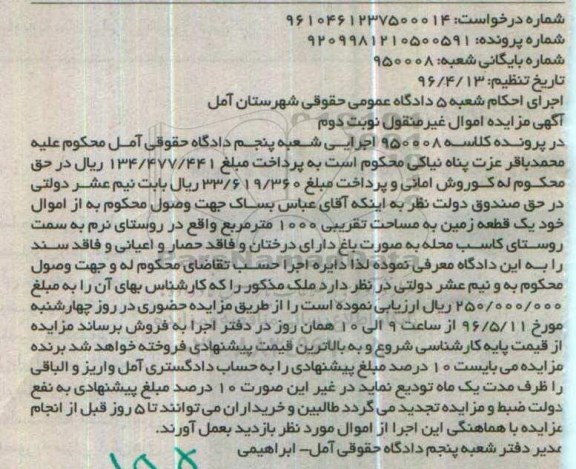 شماره درخواست: ۹۶۱۰۴۶۱۲۳۷۵۰۰۰۱۴
شماره پرونده: ۹۲۰۹۹۸۱۲۱۰۵۰۰۵۹۱
شماره بایگانی شعبه: ۹۵۰۰۰۸
تاریخ تنظیم: ۹۶/۴/۱۳
اجرای احکام شعبه ۵ دادگاه عمومی حقوقی شهرستان آمل
آگهی مزایده اموال غیرمنقول نوبت دوم
در پرونده کلاسه ۹۵۰۰۰۸ اجرایی شعبه پنجم دادگاه حقوقی آمل محکوم علیه
محمدباقر عزت پناه نیاکی محکوم است به پرداخت مبلغ ۱۳۴/۴۷۷/۴۴۱ ریال در حق
محکوم له کوروش امانی و پرداخت مبلغ ۳۳/۶۱۹/۳۶۰ ریال بابت نیم عشر دولتی
در حق صندوق دولت نظر به اینکه آقای عباس بساک جهت وصول محکوم به از اموال
خود یک قطعه زمین به مساحت تقریبی ۱۰۰۰ مترمربع واقع در روستای نرم به سمت
روستای کاسب محله به صورت باغ دارای درختان و فاقد حصار و اعیانی و فاقد سند
را به این دادگاه معرفی نموده لذا دایره اجرا حسب تقاضای محکوم له و جهت وصول
محکوم به و نیم عشر دولتی در نظر دارد ملک مذکور را که کارشناس بهای آن را به مبلغ
۲۵۰/۰۰۰/۰۰۰ ریال ارزیابی نموده است را از طریق مزایده حضوری در روز چهارشنبه
مورخ ۹۶/۵/۱۱ از ساعت ۹ الی ۱۰ همان روز در دفتر اجرا به فروش برساند مزایده
از قیمت پایه کارشناسی شروع و به بالاترین قیمت پیشنهادی فروخته خواهد شد برنده
مزایده می بایست ۱۰ درصد مبلغ پیشنهادی را به حساب دادگستری آمل واریز و الباقی
را ظرف مدت یک ماه تودیع نماید در غیر این صورت ۱۰ درصد مبلغ پیشنهادی به نفع
دولت ضبط و مزایده تجدید می گردد طالبین و خریداران می توانند تا ۵ روز قبل از انجام
مزایده با هماهنگی این اجرا از اموال مورد نظر بازدید بعمل آورند.
مدیر دفتر شعبه پنجم دادگاه حقوقی آمل- ابراهیمی